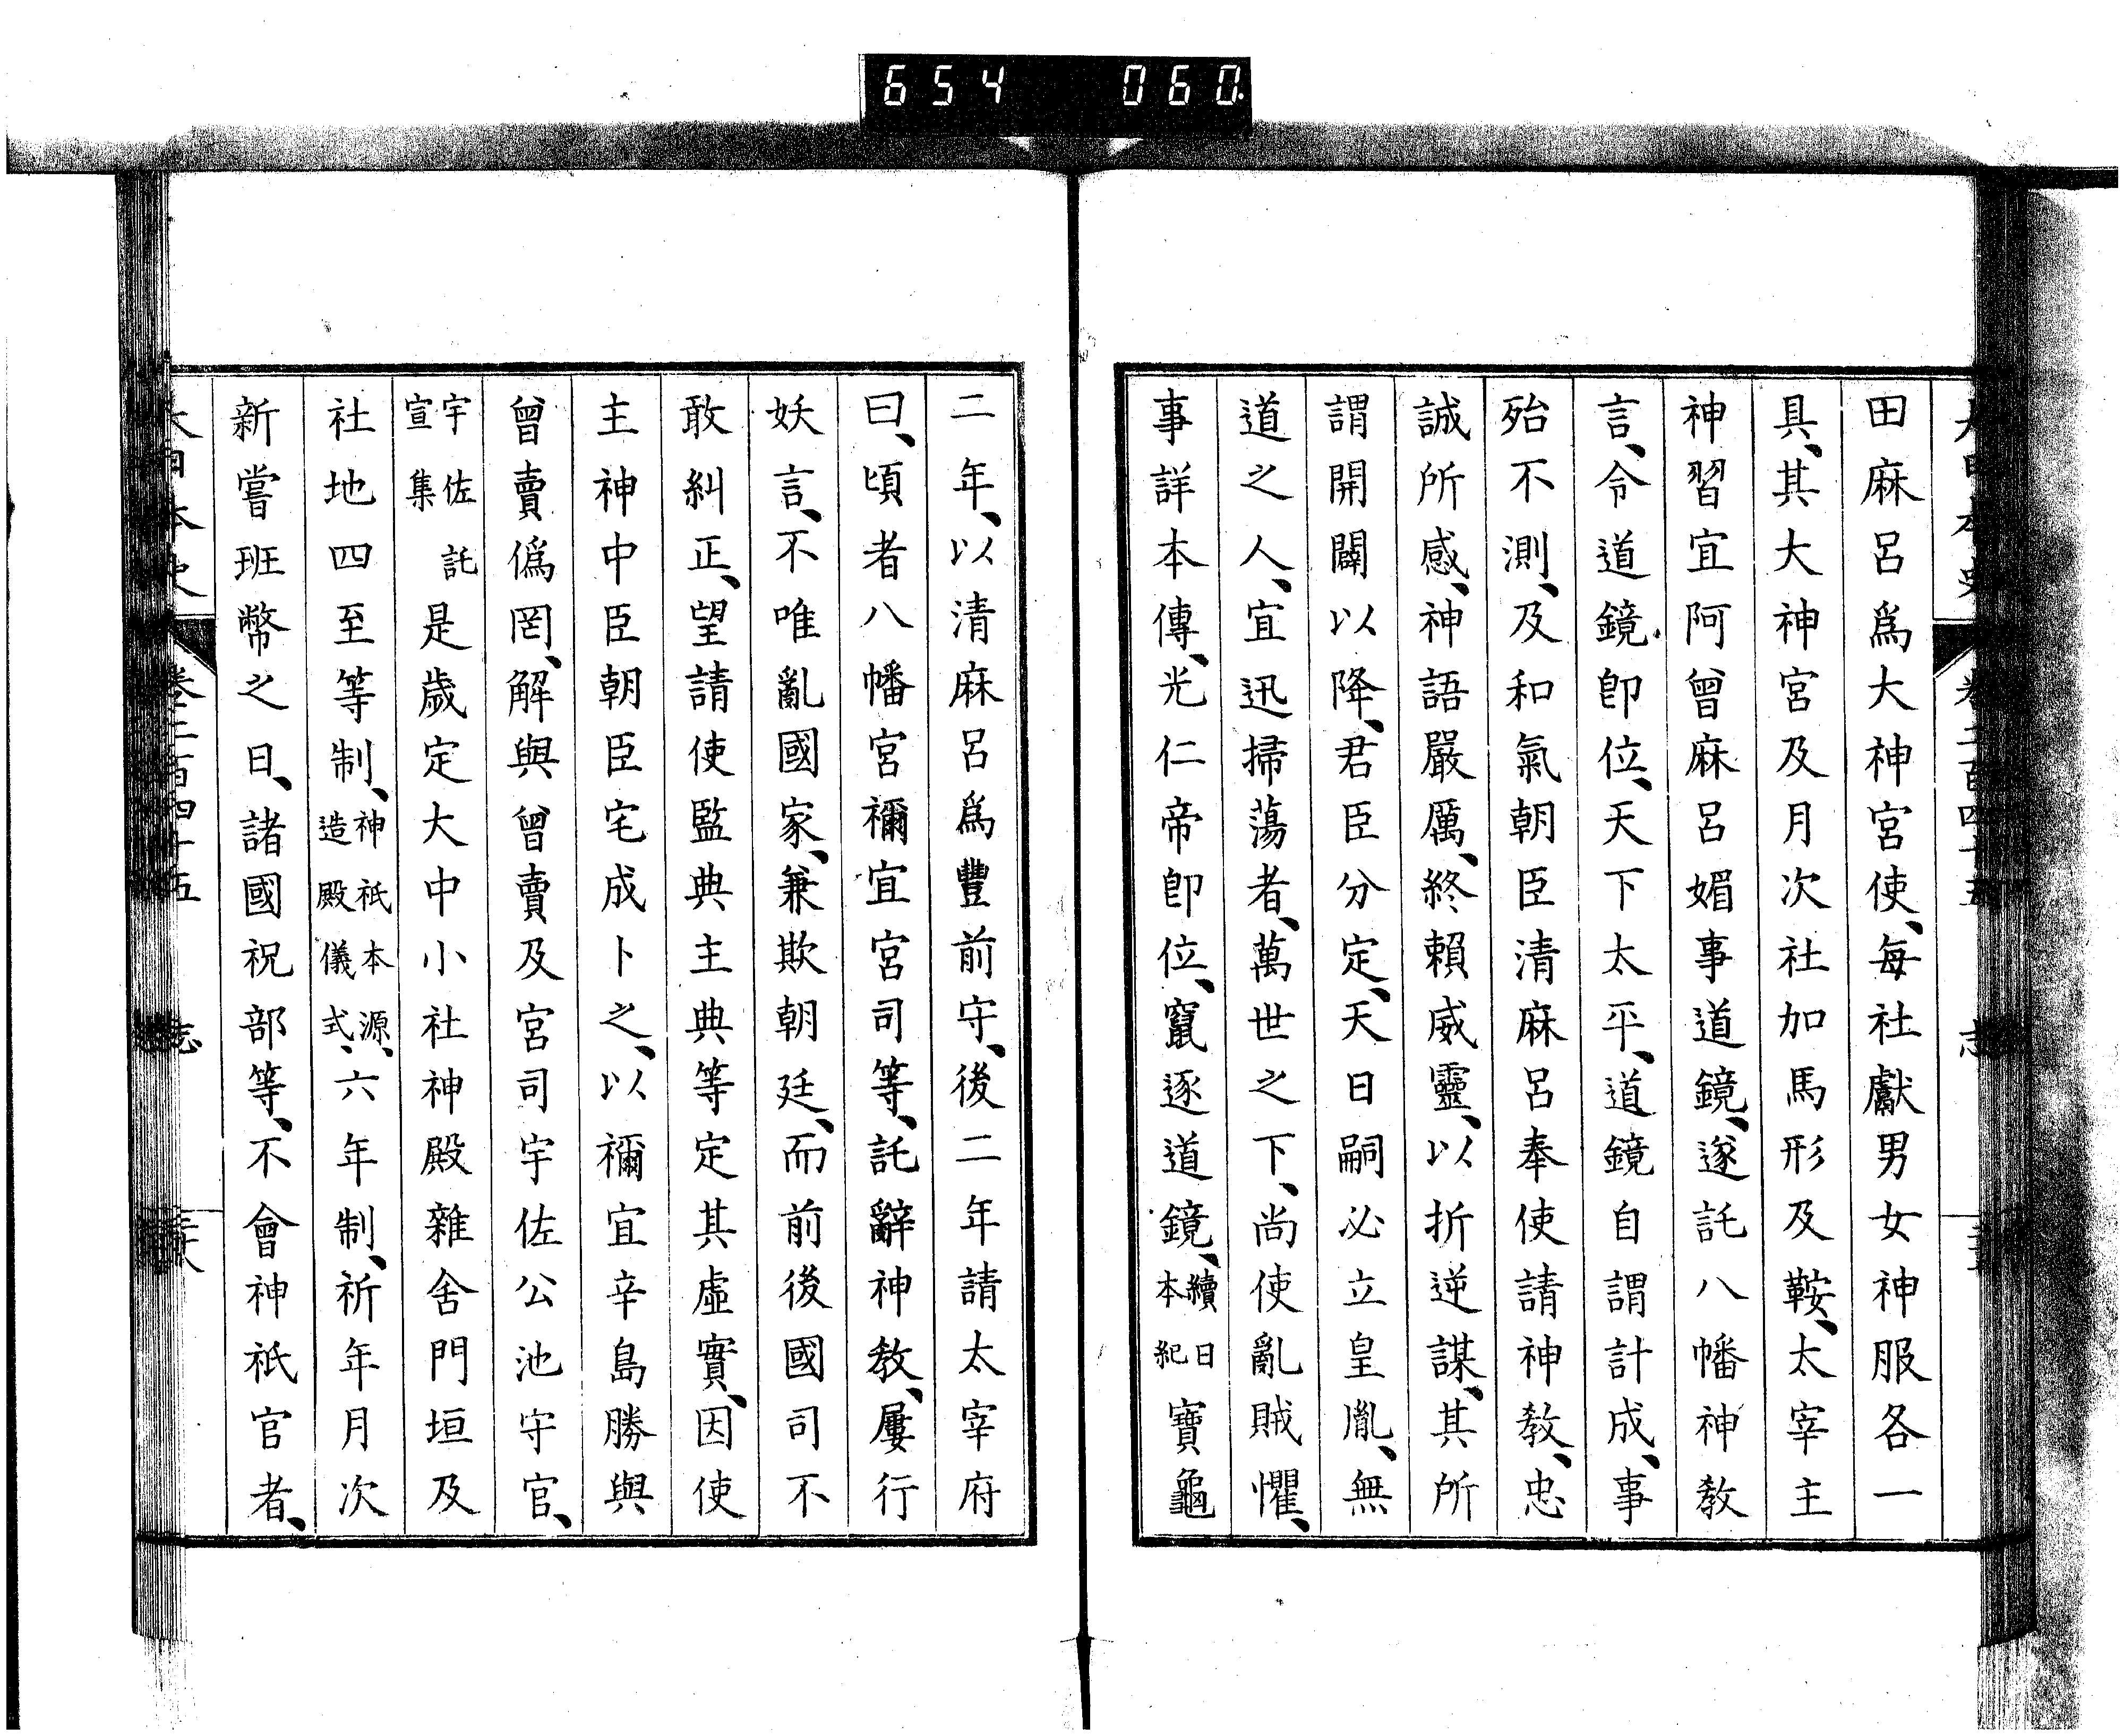 654 060
田麻呂爲大神宮使、每社獻男女神服各一
具、其大神宮及月次社加馬形及鞍、太宰主
神習宜阿曾麻呂媚事道鏡、遂託八幡神敎
言、令道鏡卽位、天下太平、道鏡自謂計成、事
殆不測、及和氣朝臣清麻呂奉使請神敎、忠
誠所感、神語嚴厲、終賴威靈、以折逆謀、其所
謂開闢以降、君臣分定、天日嗣必立皇胤、無
道之人、宜迅掃蕩者、萬世之下、尚使亂賊懼、
事詳本傳、光仁帝卽位、竄逐道鏡、續日本紀寶龜
二年、以清麻呂爲豐前守、後二年請太宰府
曰、頃者八幡宮禰宜宮司等、託辭神敎、屢行
妖言、不唯亂國家、兼欺朝廷、而前後國司不
敢糾正、望請使監典主典等定其虛實、因使
主神中臣朝臣宅成卜之、以禰宜辛島勝與
曾賣僞罔、解與曾賣及宮司宇佐公池守官、
宇佐託宣集是歲定大中小社神殿雜舍門垣及
社地四至等制、神祇本源、造殿儀式、六年制、祈年月次
新嘗班幣之日、諸國祝部等、不會神祇官者、
大日本史 卷二百四十五 志